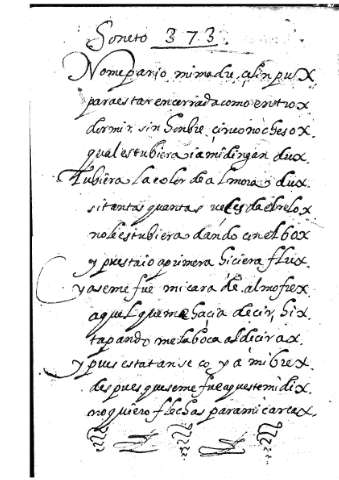 Soneto 373.
No me pario mi madre
para estar encerrada como en tro x
dormir, sin honbre, cinco noches o x.
qual estubiera
tubiera la color de almora dux.
si tantas quantas veces da el relox
no le estubiera dando con el box
y pues taio a primera hiciera flux
ya se me fue mi cara de almofrex
aquel que me hacia decir, hix
tapando me la boca al decir ax.
y pues esta tan seco y a mi
despues que se me fue aqueste mi dix.
no quiero flechas para mi carcax.